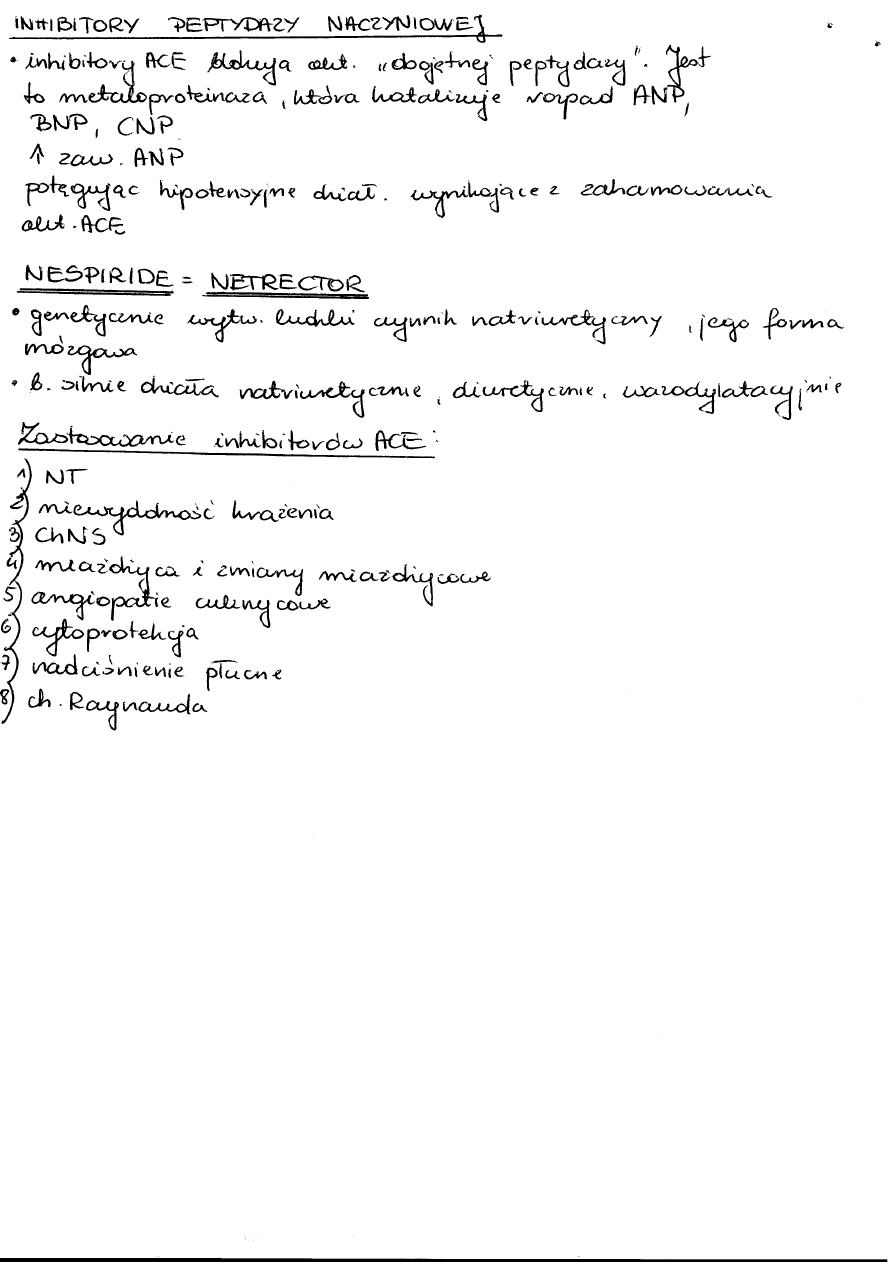 INHIBITORY PEPTYDAZY NACZYNIOWEJ
• inhibitory ACE blokują akt. „obojętnej peptydazy". Jest
to metaloproteinaza, która katalizuje rozpad ANP,
BNP, CNP
↑ zaw. ANP
potęgując hipotensyjne dział. wynikające z zahamowania
akt. ACE
NESPIRIDE = NETRECTOR
• genetycznie wytw. ludzki czynnik natriuretyczny, jego forma
mózgowa
• b. silnie działa natriuretycznie, diuretycznie, wazodylatacyjnie
Zastosowanie inhibitorów ACE:
1) NT
2) niewydolność krążenia
3) ChNS
4) miażdżyca i zmiany miażdżycowe
5) angiopatie cukrzycowe
6) cytoprotekcja
7) nadciśnienie płucne
8) ch. Raynauda